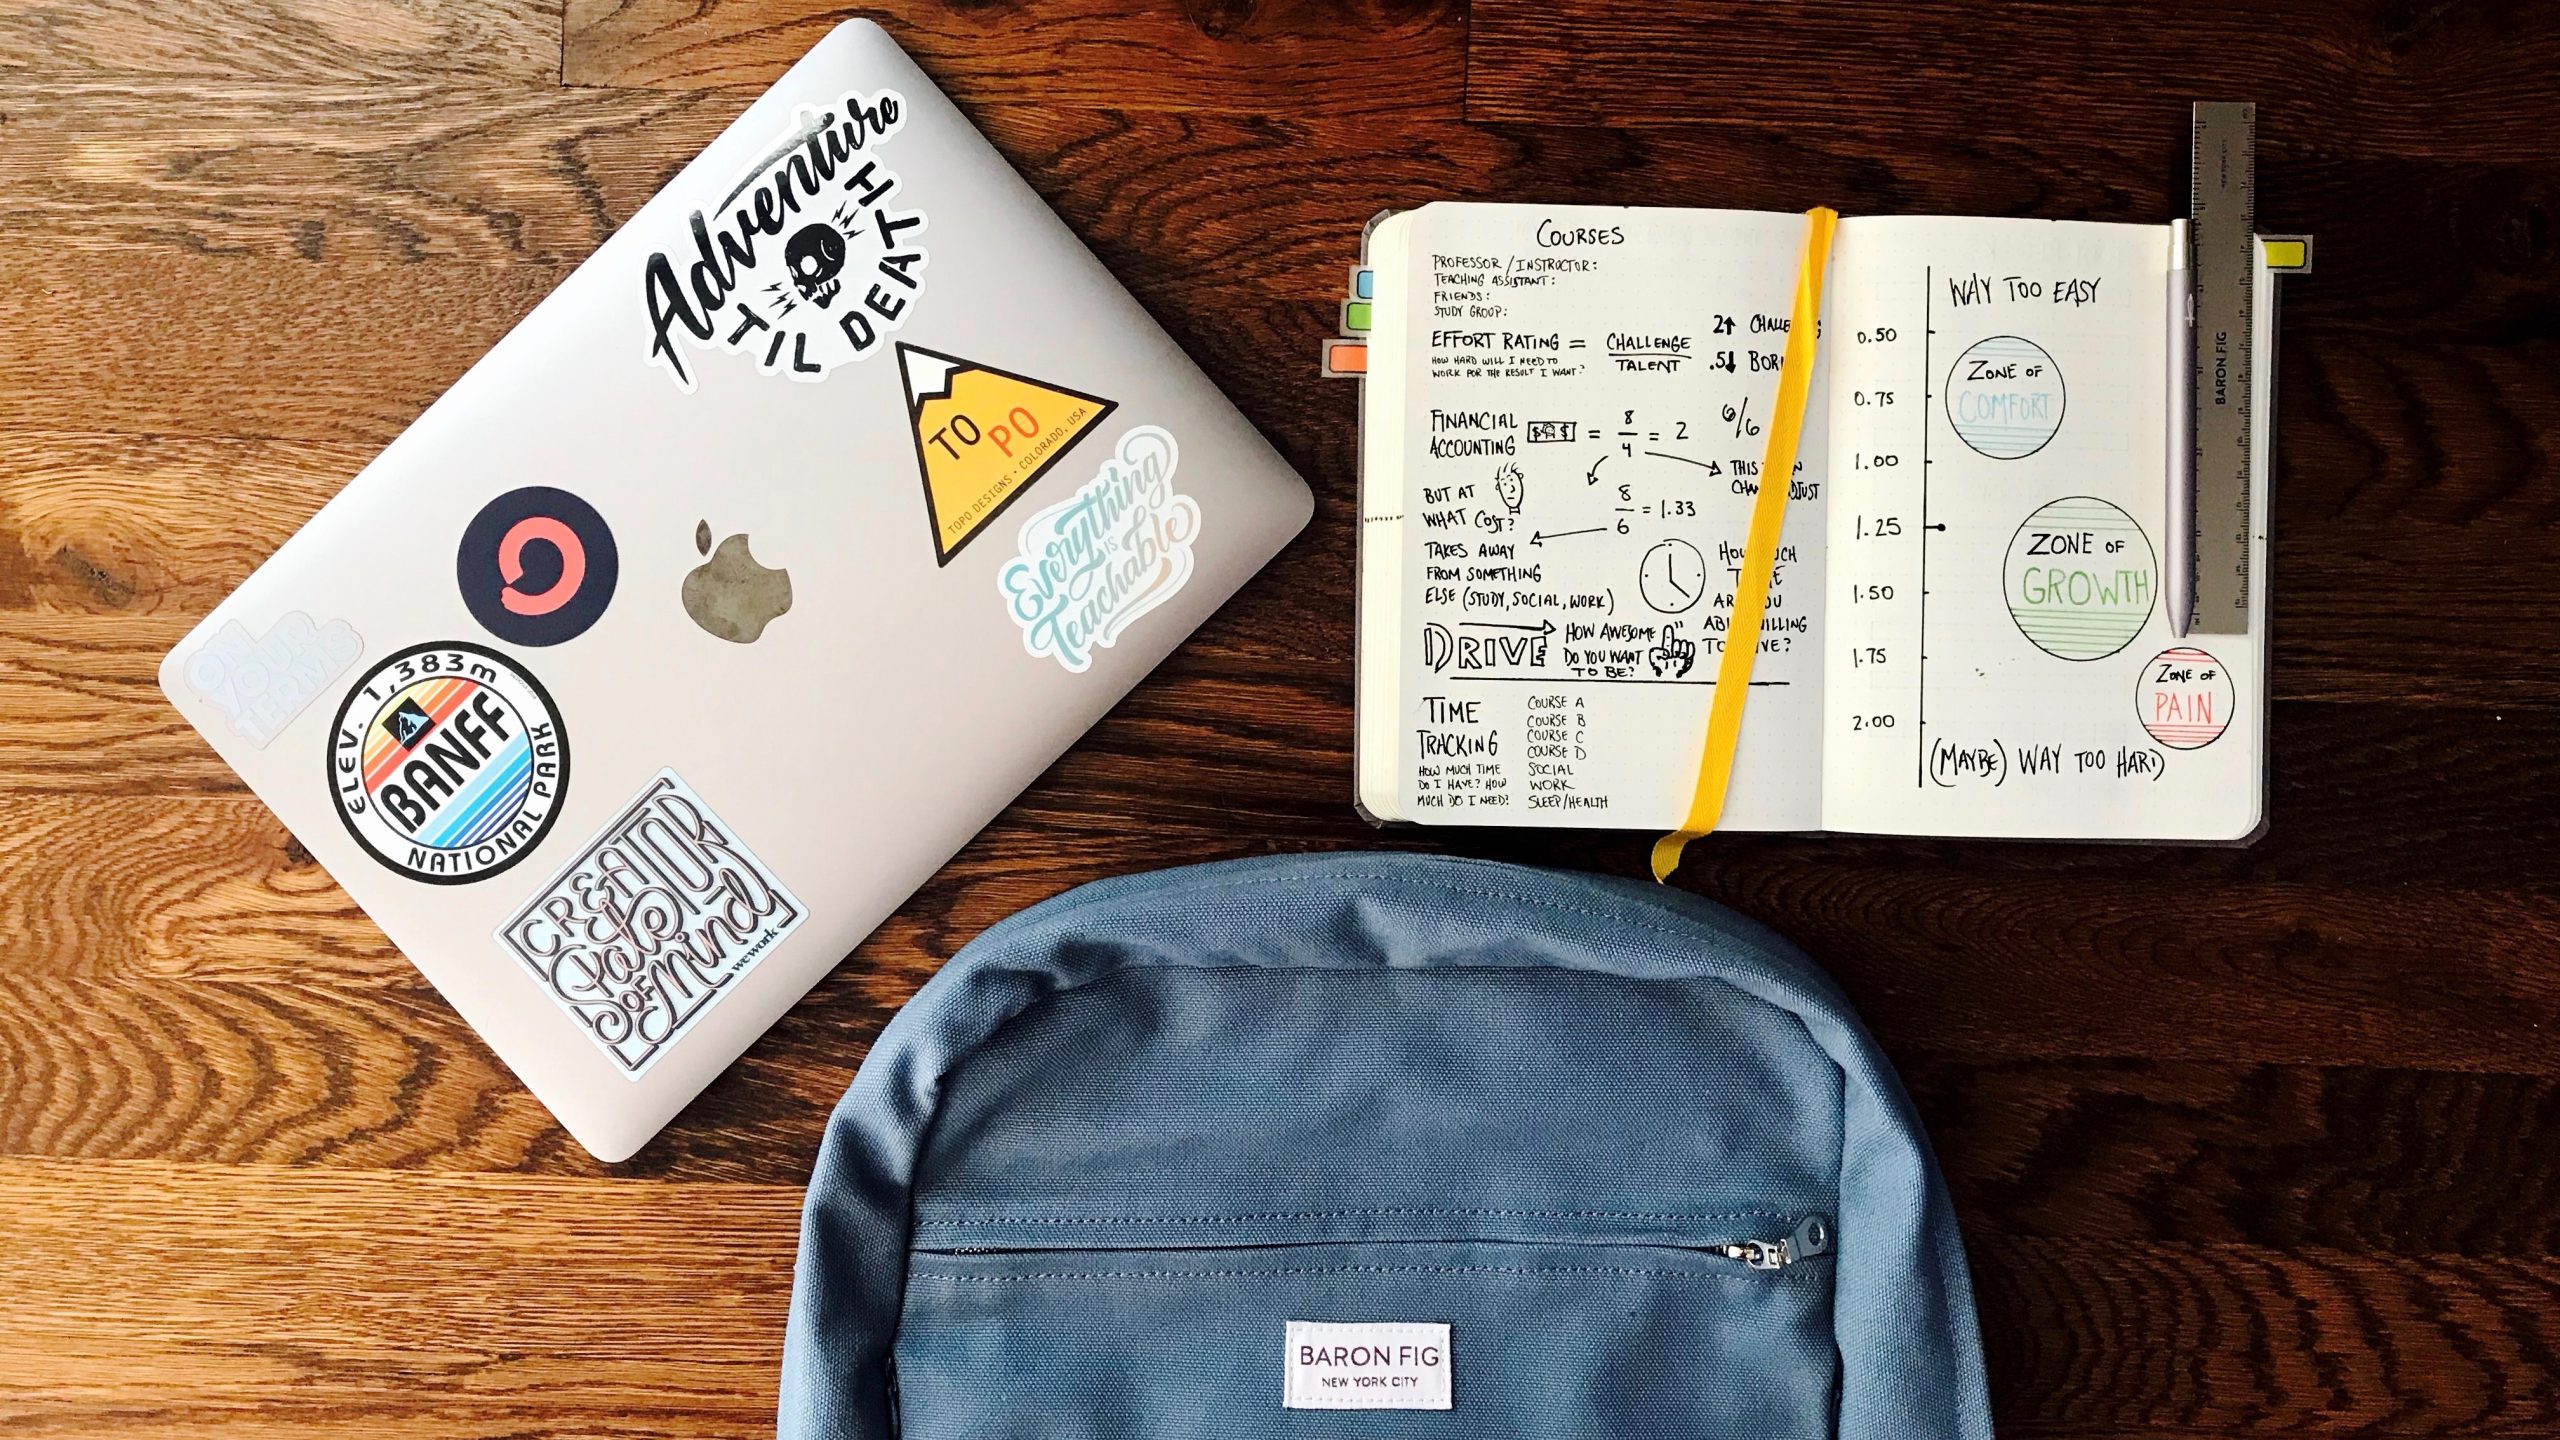 Adventure
TIL DEATH
TO
PO
TOPO DESIGNS • COLORADO, USA
Everything
IS
Teachable
ON
YOUR
TERMS
ELEV. 1,383m
BANFF
NATIONAL PARK
CREATOR
State
OF
Mind
wework
COURSES
PROFESSOR/INSTRUCTOR:
TEACHING ASSISTANT:
FRIENDS:
STUDY GROUP:
EFFORT RATING = CHALLENGE
TALENT
HOW HARD WILL I NEED TO
WORK FOR THE RESULT I WANT?
2↑
.5↓
FINANCIAL
ACCOUNTING
$ $ = 8/4 = 2
6/6
THIS
BUT AT
WHAT COST?
8/6 = 1.33
TAKES AWAY
FROM SOMETHING
ELSE (STUDY, SOCIAL, WORK)
TO
DRIVE
HOW AWESOME
DO YOU WANT
TO BE?
TIME
TRACKING
HOW MUCH TIME
DO I HAVE? HOW
MUCH DO I NEED?
COURSE A
COURSE B
COURSE C
COURSE D
SOCIAL
WORK
SLEEP/HEALTH
WAY TOO EASY
0.50
ZONE OF
COMFORT
0.75
1.00
1.25
ZONE OF
GROWTH
1.50
1.75
ZONE OF
PAIN
2.00
(MAYBE) WAY TOO HARD
BARON FIG
BARON FIG
NEW YORK CITY